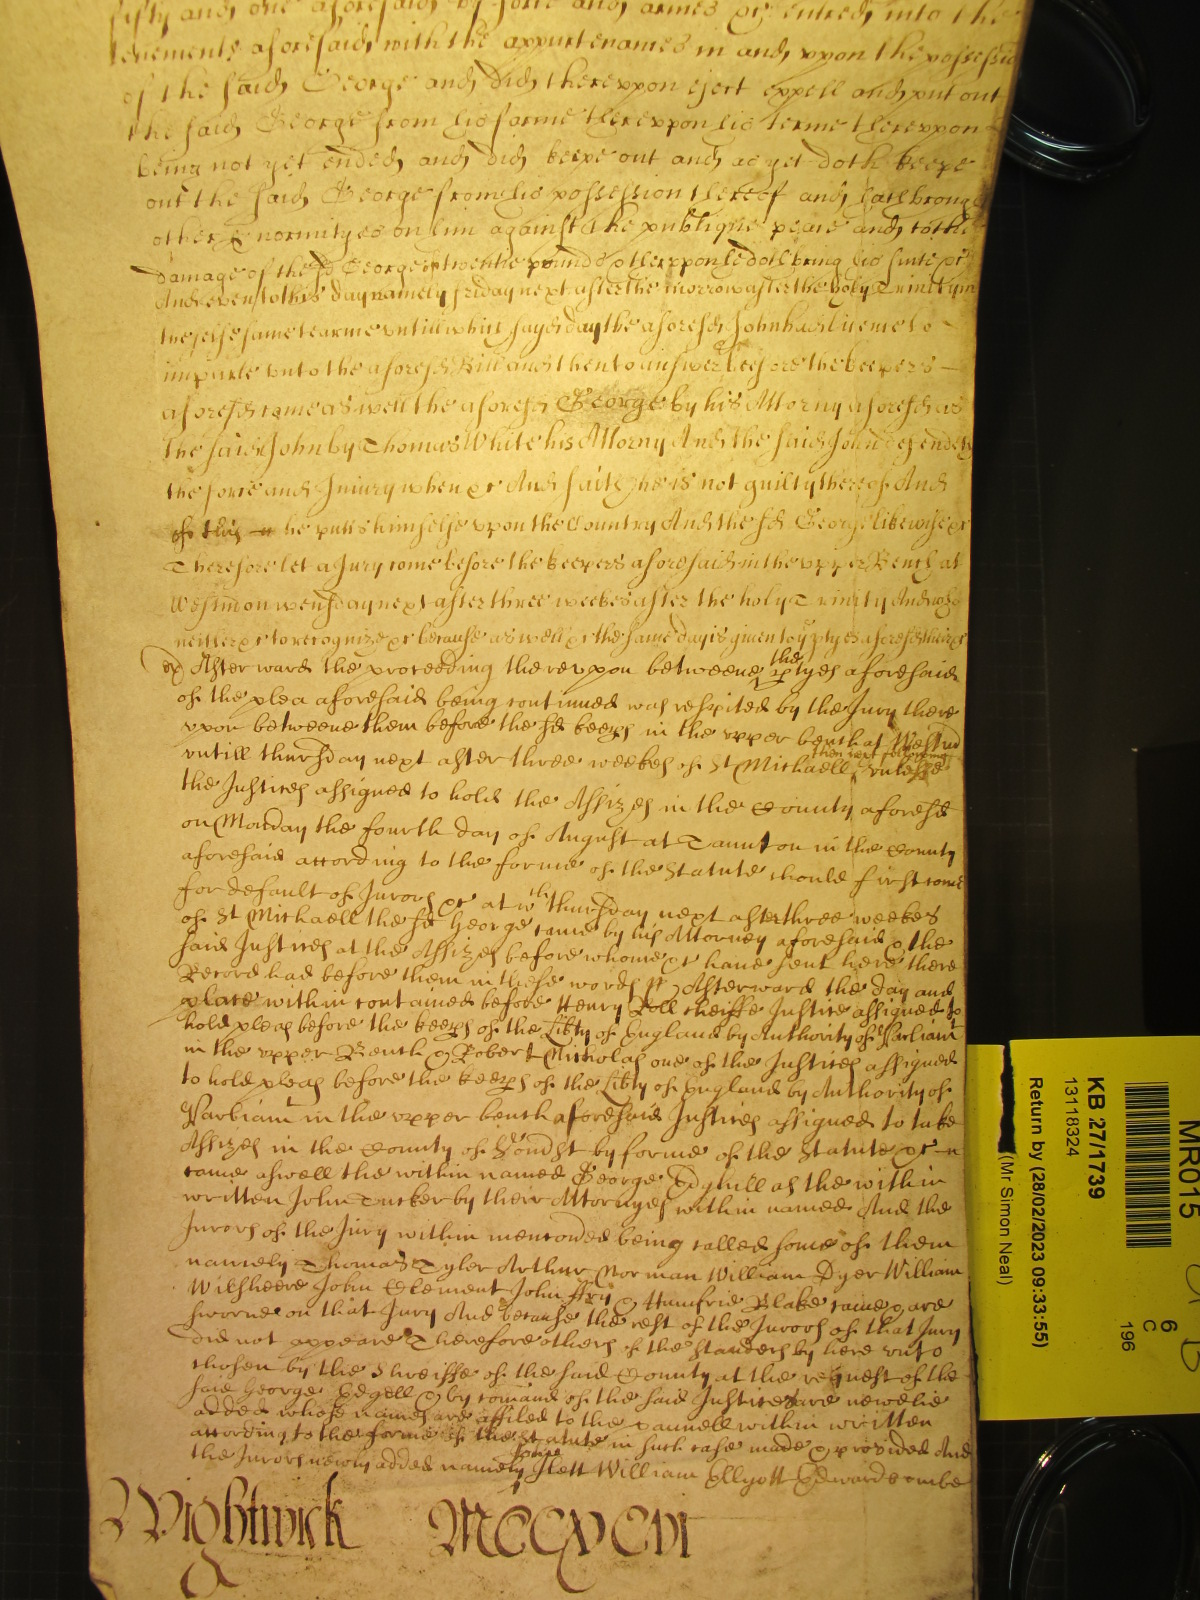 fifty and one aforesaid by force and armes &c entred into the
tenements aforesaid with the appurtenances in and vpon the possessio
of the said George and did therevpon eject expell and put out
the said George from his farme therevpon his terme therevpon
being not yet ended and did keepe out and as yet doth keepe
out the said George from his possession thereof and hath brought
other Enormityes on him against the publique peace and to the
damage of the sd George twentie pounds & therevpon he doth bring his suite &c
And even to this day namely friday next after the morrow after the holy Trinity in
the selfe same tearme vntill which sayd day the aforesd John had licence to
imparle vnto the aforesd Bill and then to answer &c before the keepers
aforesd came as well the aforesd George by his Attorny aforesd as
the said John by Thomas White his Attorny And the said John defendeth
the force and Iniury when &c And saith he is not guilty thereof And
of this he putts himselfe vpon the Country And the sd George likewise &c
Therefore let a Jury come before the keepers aforesaid in the vpper Bench at
Westm on wensday next after three weekes after the holy Trinity And who
neither &c to recognize &c because as well &c the same day is given to ye ptyes aforesd there &c
Afterward the proceeding therevpon betweene the ptyes aforesaid
of the plea aforesaid being continued was respited by the Jury there
vpon betweene them before the sd keeps in the vpper bench at Westm
vntill thursday next after three weekes of St Michaell then next following vnlesse
the Justices assigned to hold the Assizes in the County aforesd
on Monday the fourth day of August at Taunton in the County
aforesaid according to the forme of the Statute should first come
for default of Jurors &c at wch thursday next after three weekes
of St Michaell the sd George came by his Attorney aforesaid & the
said Justices at the Assizes before whome &c have sent here there
Record had before them in these words ss Afterward the day and
place within contained before Henry Roll cheiffe Justice assigned to
hold pleas before the keeps of the Libty of England by Authority of Parliamt
in the vpper Bench & Robert Nicholas one of the Justices assigned
to hold pleas before the keeps of the Libty of England by Authority of
Parliamt in the vpper bench aforesaid Justices assigned to take
Assizes in the County of Somst by forme of the Statute &c
came aswell the within named George Edghill as the within
written John Tucker by their Attorneyes within named And the
Jurors of the Jury within mentoned being called some of them
namely Thomas Tyler Arthur Norman William Dyer William
Wilsheere John Clement John ffry & Humfrie Blake came & are
sworne on that Jury And because the rest of the Jurors of that Jury
did not appeare Therefore others of the standers by here vnto
chosen by the Shreiffe of the said County at the request of the
said George Edgell & by comand of the said Justices are newelie
added whose names are affiled to the pannell within written
according to the forme of the Statute in such case made & provided And
the Jurors newly added namely flett William Ellyott Edward Combe
Wightwick MCCXCVI
MR015
KB 27/1739
13118324
Return by (28/02/2023 09:33:55)
(Mr Simon Neal)
6
C
196